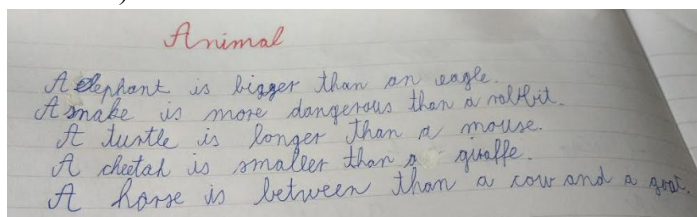 Animal
A elephant is bigger than an eagle.
A snake is more dangerous than a rabbit.
A turtle is longer than a mouse.
A cheetah is smaller than a giraffe.
A horse is between than a cow and a goat.